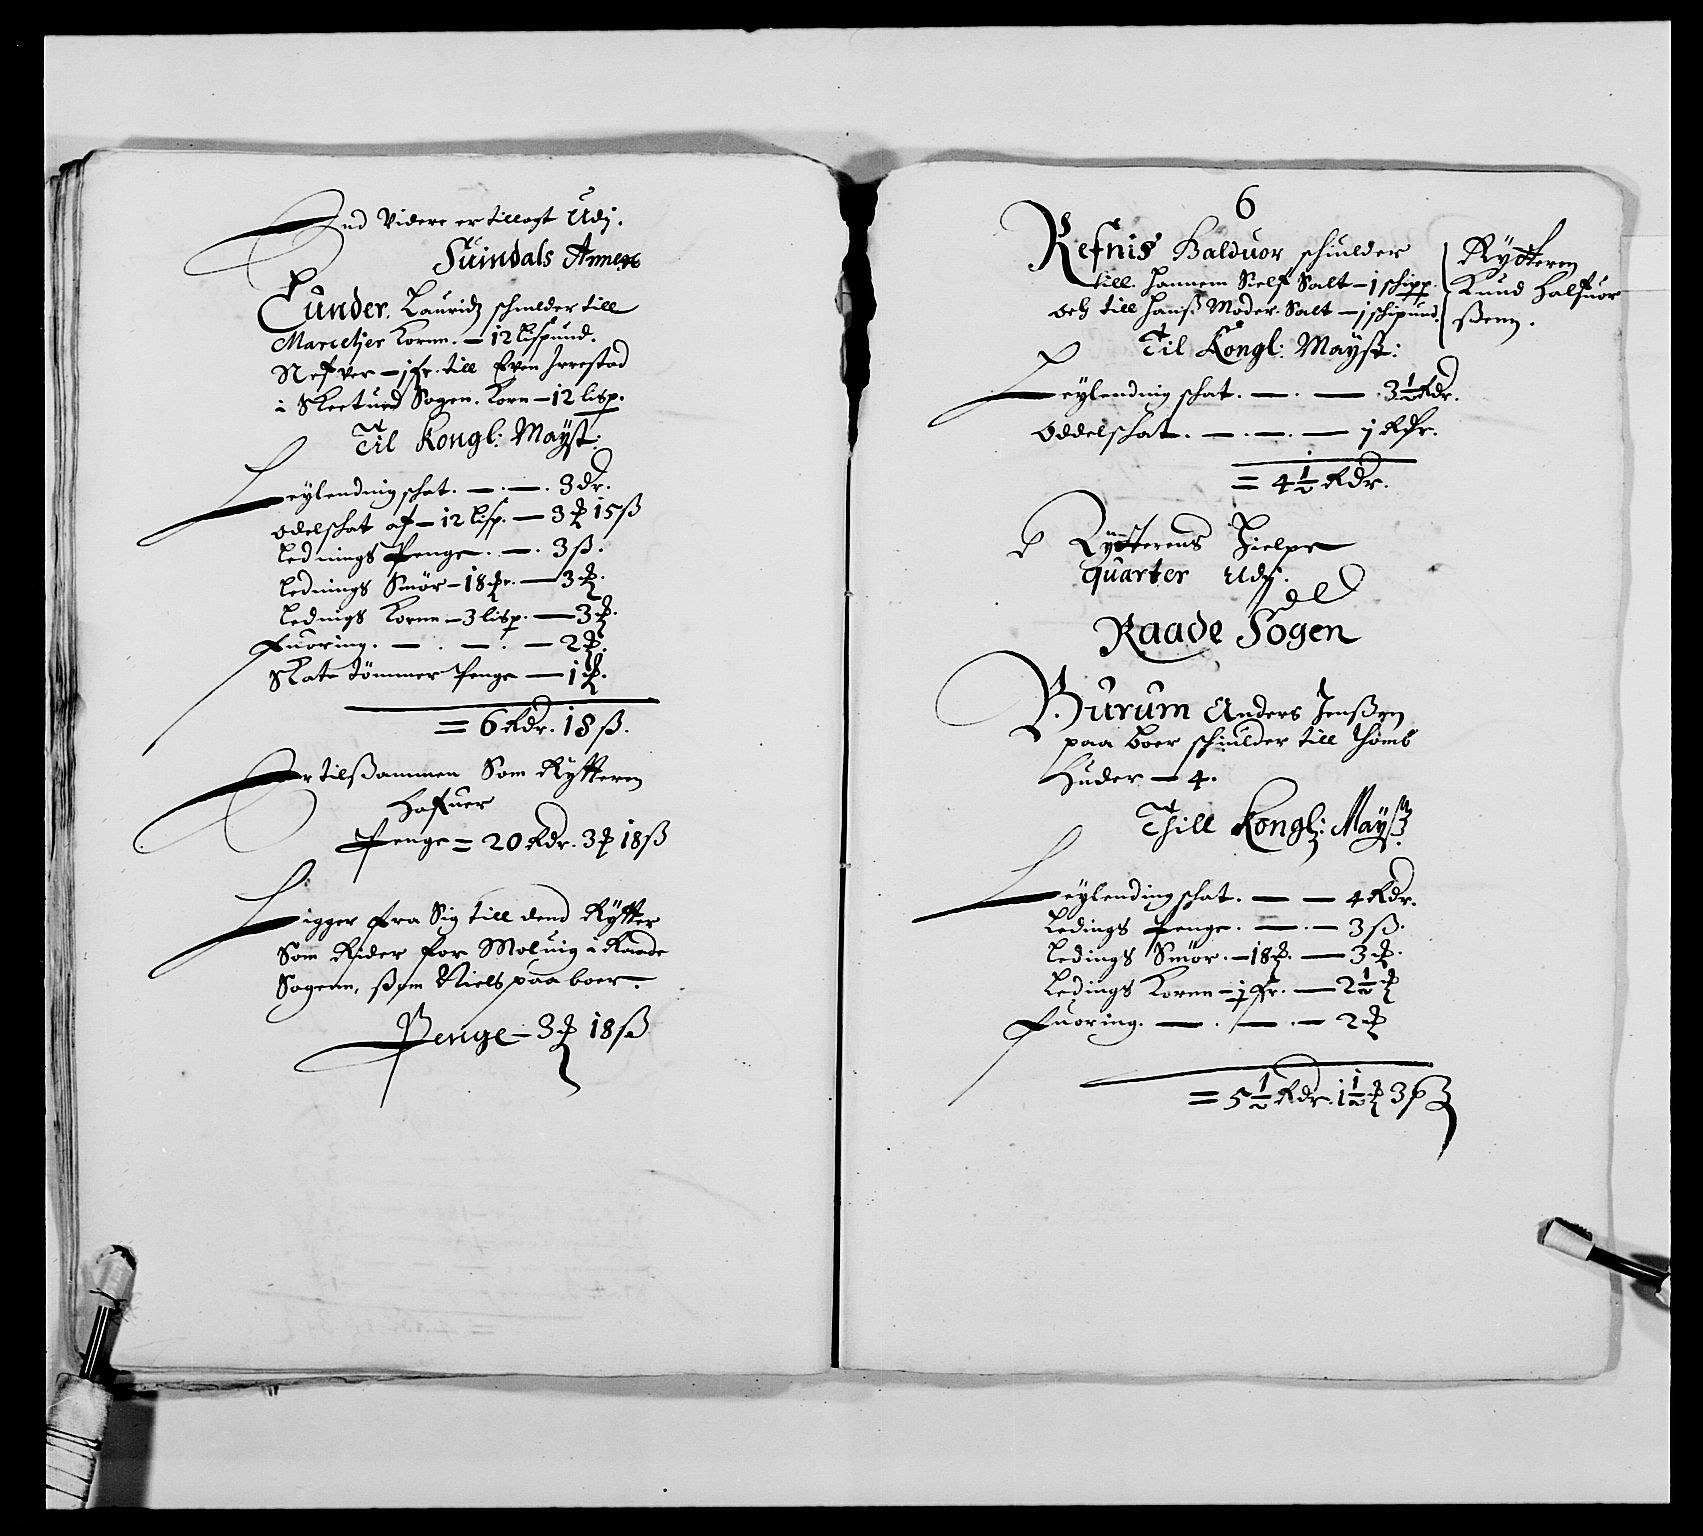 End Videre er tillagt Udj.
Suindals Annex
Lunder. Lauridz schiulder till
Marcetjer Kornn. — 12 lispund.
Nefver — j fr. till Even Jrrestad
i Skeetued Sogen. Korn — 12 lisp.
Til Kongl: Mayst:
Leylending schat. — . — . 3 dr.
odelschat af — 12 lisp. — 3 ₰ 15 ß
Lednings Penge. — . 3 ß.
Lednings Smör — 18 ₰r. — 3 ₰.
Lednigs Kornn — 3 lisp. — 3 ₰.
Fuoring. — . — . — 2 ₰.
Skate tömmer Penge — 1 ₰.
= 6 Rdr. 18 ß.
Er tilßammen Som Rytteren
Hafuer
Penge = 20 Rdr. 3 ₰ 18 ß
Ligger fra Sig till dend Rytter
Som Rider for Moluig i Raade
Sogenn, ßom Niels paa boer.
Penge — 3 ₰ 18 ß
6
Refnis Balduor schiulder
till. hannem Sielf Salt — 1 schipp.
och till hanß Moder. Salt — j schipund.
Rytteren
Knud Halfuor
ßenn.
Til Kongl: Mayst:
Leylending schat. — . — . 3 1/2 Rdr.
Oddelschat. — . — . — j Rdr.
= 4 1/2 Rdr.
Rytterens Hielpe
quarter Udj.
Raade Sogen
Burum Anders Jenßen
paa boer schiulder till Thomb
Huder — 4.
Thill Kongl: Mayst:
Leylending schat. — — 4 Rdr.
Ledings Penge. — . — 3 ß.
Ledings Smör. — 18 ₰. — 3 ₰.
Ledings Kornn — j fr. — 2 1/2 ₰
Fuoring. — . — . — 2 ₰
= 5 1/2 Rdr. 1 1/2 ₰ 3 ß